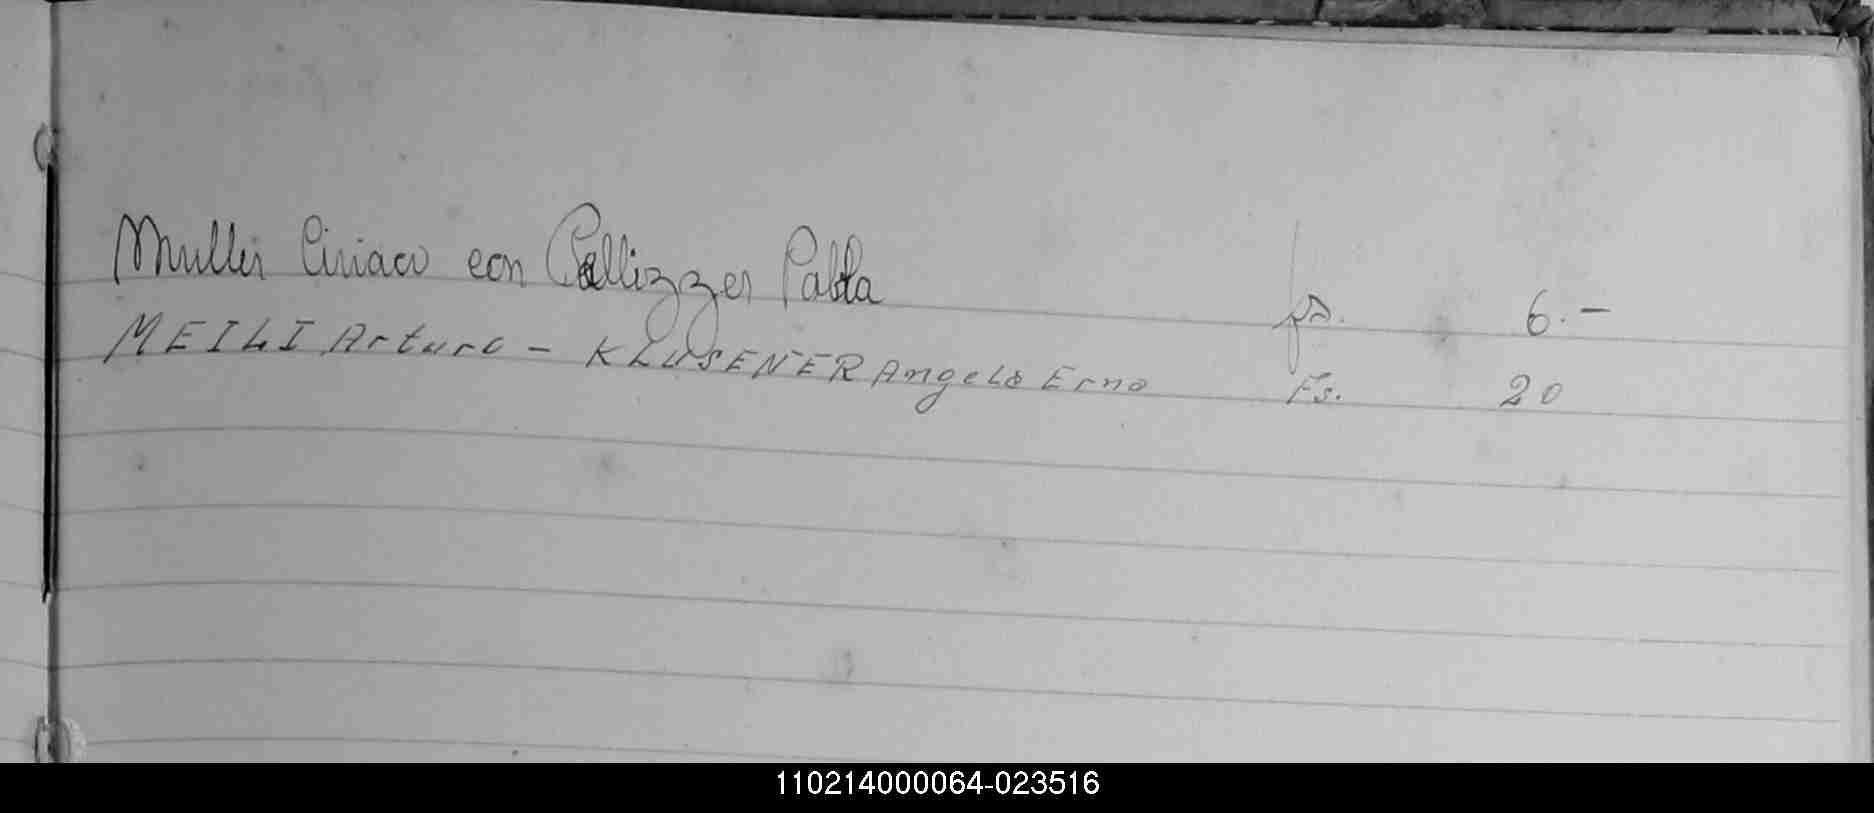 Muller Ciriaco con Pellizzer Pabla fs. 6.-
MEILI Arturo - KLUSENER Angelo Erno Fs. 20
110214000064-023516